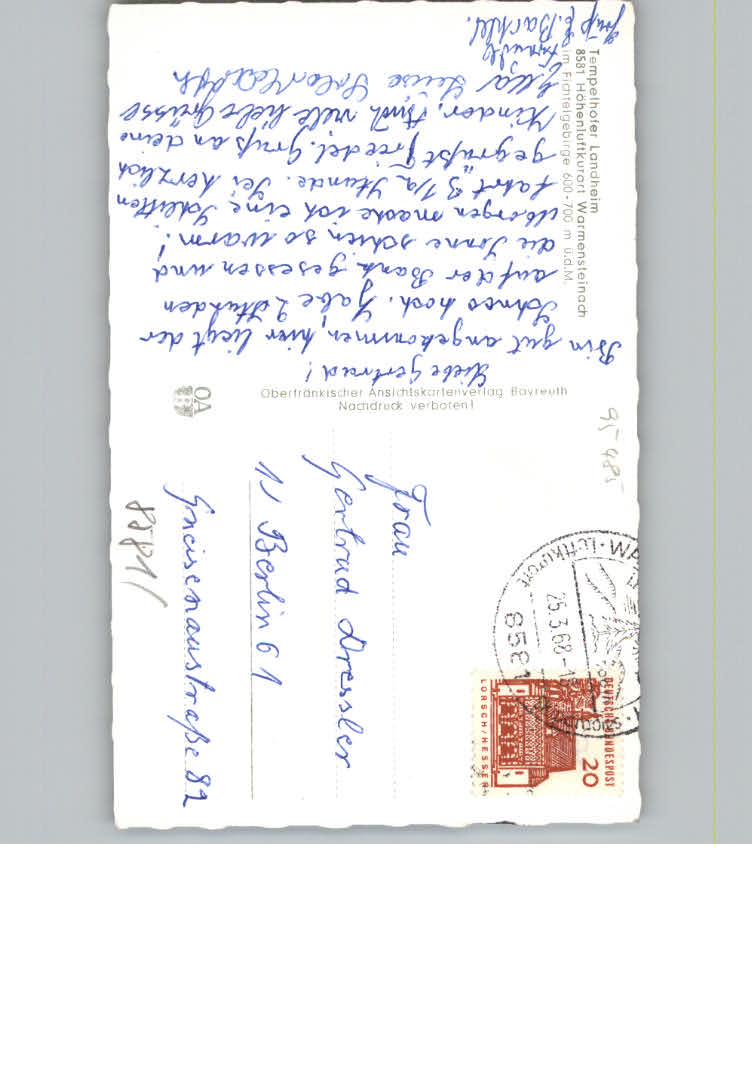 Tempelhofer Landheim
8581 Höhenluftkurort Warmensteinach
im Fichtelgebirge 600-700 m ü.d.M.
Liebe Gertrud!
Bin gut angekommen, hier liegt der
Schnee hoch. Habe 2 Stunden
auf der Bank gesessen und
die Sonne schien so warm!
Morgen mache ich eine Schlitten
fahrt 3 1/2 Stunde. Sei herzlich
gegrüßt Friedel. Gruß an deine
Kinder. Auch viele liebe Grüsse
Luise
Gruß E. Bartel.
Oberfränkischer Ansichtskartenverlag Bayreuth
Nachdruck verboten!
OA
95 485
Frau
Gertrud Dressler
1/ Berlin 61
Gneisenaustraße 82
8581/
LUFTKURORT · WA
25.3.68-1
8581
DEUTSCHE BUNDESPOST
20
LORSCH/HESSEN